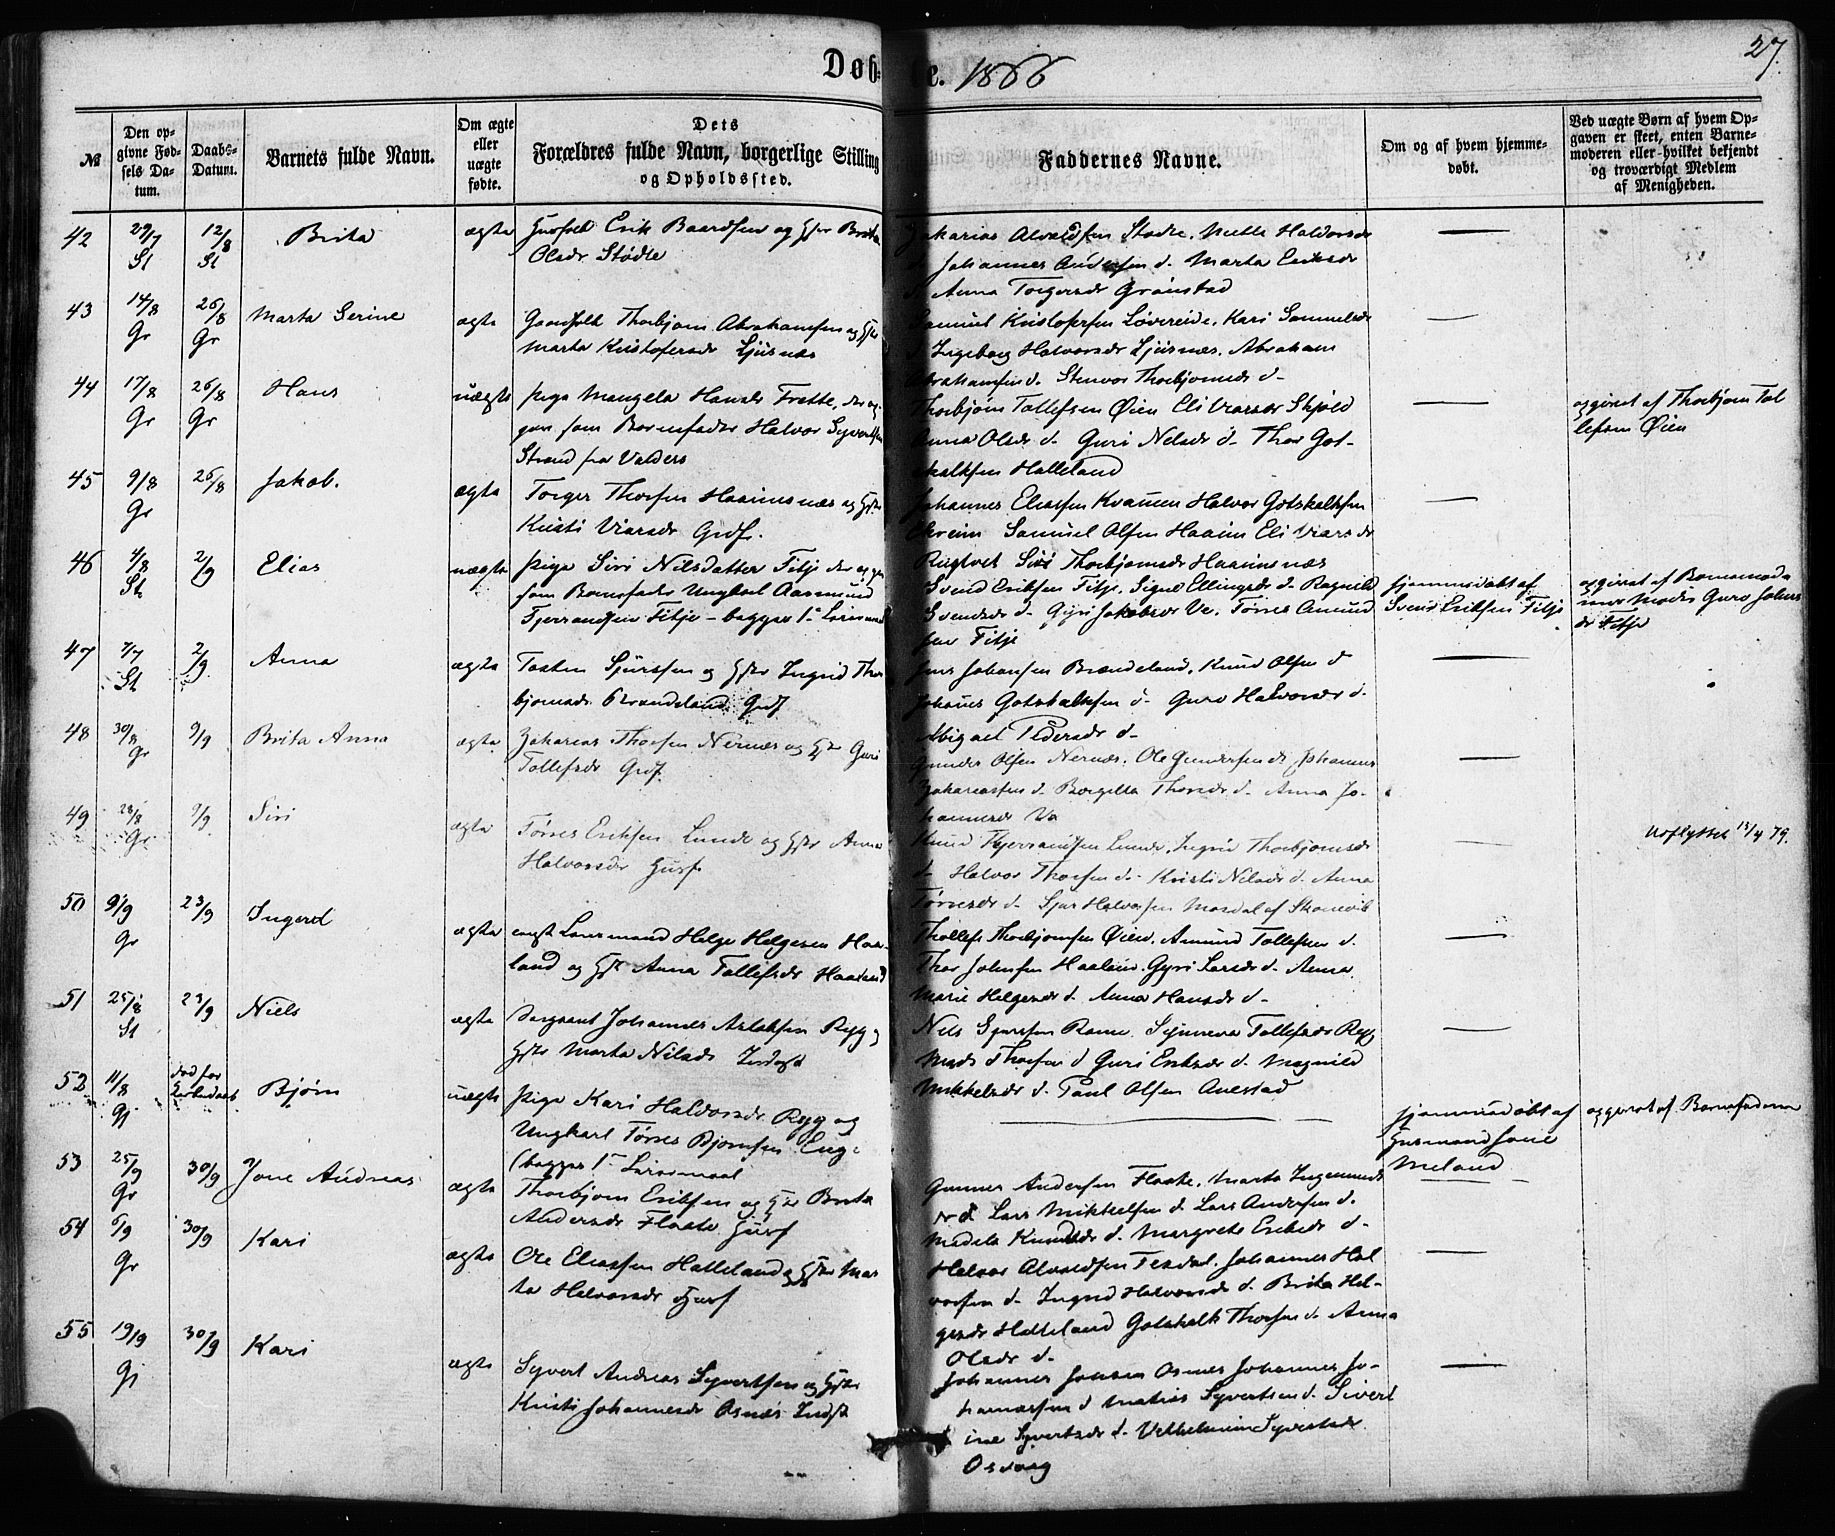 Døb-te. 1866
27.
№
Den op-
givne Fød-
sels Da-
tum.
Daabs-
Datum.
Barnets fulde Navn.
Om ægte
eller
uægte
fødte.
Dets
Forældres fulde Navn, borgerlige Stilling
og Opholdssted.
Faddernes Navne.
Om og af hvem hjemme-
døbt.
Ved uægte Børn af hvem Op-
gaven er skeet, enten Barne-
moderen eller hvilket bekjendt
og troværdigt Medlem
af Menigheden.
42 29/7 St 12/8 St Brita ægte Husfolk Erik Baardsen og Hstr Brita
Olsdr Stødle
Zakarias Alvaldsen Stødle, Mette Haldorsdr
d. Johannes Andersen d. Marta Eriksdr
d. Anna Torgersdr Grønstad
43 14/8 Gr 26/8 Gr Marta Serine ægte Gaardfolk Thorbjørn Abrahamsen og Hstr
Marta Kristofersdr Ljusnæs
Samuel Kristofersen Løvereide, Kari Samuelsdr
d. Ingeborg Halvorsdr Ljusnæs. Abraham
Abrahamsen d. Stenvor Thorbjørnsdr d.
44 17/8 Gr 26/8 Gr Hans uægte Pige Mangela Hansdr Frette, der op-
gav som Barnefader Halvor Syvertsen
Strand fra Valders
Thorbjørn Tollefsen Øien Eli Viarsdr Skjold
Anna Olsdr d. Guri Nilsdr d. Thor Got-
skalksen Halleland
opgivet af Thorbjørn Tol
lefsen Øien
45 9/8 Gr 26/8 Jakob. ægte Torger Thorsen Haaimsnæs og Hstr
Kristi Viarsdr Grdf.
Johannes Eliassen Kvamen Halvor Gotskalksen
Ekreim Samuel Olsen Haaim Eli Viarsdr
Rugtvet Siri Thorbjørnsdr Haaimsnæs
46 4/8 St 2/9 Elias uægte Pige Siri Nilsdatter Fitje der opgav
som Barnefader Ungkarl Aasmund
Fjerrandsen Fitje – begges 1ste Leiermaal
Svend Eriksen Fitje, Signe Ellingsdr d. Ragnild
Svendsdr d. Gyri Jakobsdr Ve, Tørres Amund
sen Fitje
hjemmedøbt af
Svend Eriksen Fitje
opgivet af Barnemode
rens Moder Guro Johns
dr Fitje
47 7/7 St 2/9 Anna ægte Tosten Sjursen og Hstr Ingrid Thor
bjørnsdr Brandeland Grdf
Jens Johansen Brandeland, Knud Olsen d
Johanes Gotskalksen d. Guro Halvorsdr d.
Abigael Pedersdr d.
48 30/8 Gr 9/9 Brita Anna ægte Zakarias Thorsen Nernæs og Hstr Guri
Tollefsdr Grdf.
Gunder Olsen Nernæs, Ole Gundersen d. Johannes
Zakariassen d. Borgilla Thorsdr d. Anna Jo-
hannesdr Va
49 28/8 Gr 9/9 Siri ægte Tørres Eriksen Lunde og Hstr Anna
Halvorsdr Husf.
Knud Fjerrandsen Lunde, Ingrid Thorbjørnsdr
d. Halvor Thorsen d. Kristi Nilsdr d. Anna
Tørresdr d. Sjur Halvorsen Mosdal af Skonevik
Udflyttet 15/4 79.
50 9/9 Gr 23/9 Ingerd ægte Lænsmand Helge Helgesen Haa-
land og Hstr Anna Tollefsdr Haaland
Thollef Thorbjørnsen Øien, Amund Tollefsen d.
Thor Johnsen Haaland. Gyri Larsdr d. Anna
Marie Helgesdr d. Anna Hansdr d.
51 25/8 St 23/9 Niels ægte Sergeant Johannes Aslaksen Rygg
Hstr Marta Nilsdr Indest
Nils Sjursen Rame, Synneva Tollefsdr Rygg
Mads Thorsen d Guri Eriksdr d. Magnild
Mikkelsdr d. Paul Olsen Auestad
52 11/8 Gj død før
Kirkedaab Bjørn uægte Pige Kari Haldorsdr Rygg og
Ungkarl Tørres Bjørnsen Eng-
(begges 1ste Leiermaal
hjemmedøbt af
Husmand Jone
Meland
opgivet af Barnefaderen
53 25/9 Gr 30/9 Jone Andreas ægte Thorbjørn Eriksen og Hstr Brita
Andersdr Flaate Husf
Gunner Andersen Flaate, Marta Ingemunds
dr d Lars Mikkelsen d. Lars Andersen d.
Madela Knudsdr d. Margrete Eriksdr d.
54 6/9 Gr 30/9 Kari ægte Ole Eliassen Halleland og Hstr Mar
ta Halvorsdr Husf
Halvor Alvaldsen Tesdal. Johannes Hal
vorsen d. Ingrid Halvorsdr d. Brita Hel-
gesdr Halleland Gotskalk Thorsen d. Anna
Olsdr d.
55 19/9 Gj 30/9 Kari ægte Syvert Andreas Syvertsen og Hstr
Kristi Johannesdr Osnæs Indst
Johannes Jonsen Osnæs Johannes Jo-
hannessen d Matias Syvertsen d. Sivert
ine Syvertsdr d. Velhelmine Syvertsdr
Osvaag